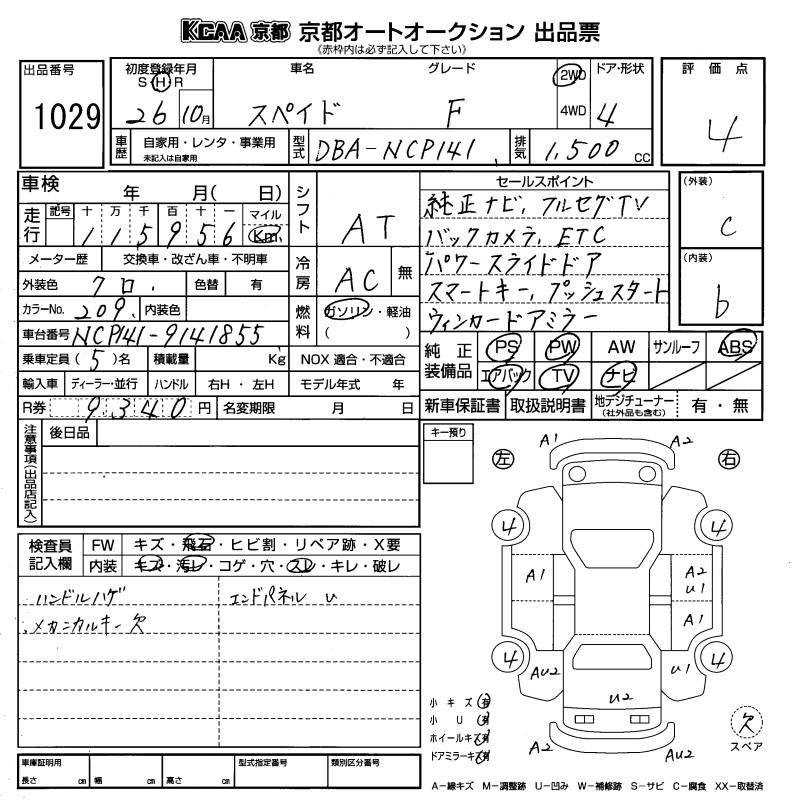 KCAA 京都 京都オートオークション 出品票
(赤枠内は必ず記入して下さい)
出品番号
1029
初度登録年月 車名 グレード 2WD ドア・形状
S H R
26 10月 スペイド F 4WD 4
車歴 自家用・レンタ・事業用 型式 DBA-NCP141 排気 1,500 cc
未記入は自家用
評価点
4
車検 年 月( 日)
走行 記号 十 万 千 百 十 一 マイル
1 1 5 9 5 6 Km
シフト AT
メーター歴 交換車・改ざん車・不明車
外装色 クロ 色替 有
冷房 AC 無
カラーNo. 209 内装色
燃料 ガソリン・軽油
( )
車台番号 NCP141-9141855
乗車定員(5)名 積載量 Kg NOX 適合・不適合
輸入車 ディーラー・並行 ハンドル 右H・左H モデル年式 年
R券 9340円 名変期限 月 日
セールスポイント
純正ナビ、フルセグTV
バックカメラ、ETC
パワースライドドア
スマートキー、プッシュスタート
ウィンカードアミラー
(外装)
C
(内装)
b
純正装備品 PS PW AW サンルーフ ABS
エアバック TV ナビ
新車保証書 取扱説明書 地デジチューナー 有・無
(社外品も含む)
注意事項(出品店記入)
後日品
キー預り
検査員記入欄 FW キズ・飛石・ヒビ割・リペア跡・X要
内装 キズ・汚レ・コゲ・穴・スレ・キレ・破レ
ハンドルハゲ エンドパネル U
メカニカルキー欠
A1 A2
左 右
4 4
A1 A2
U1
A1
4 4
AU2 U1
U2
小キズ(有)
小U(有)
ホイールキズ(有)
ドアミラーキズ(有)
A2 AU2
欠
スペア
車庫証明用 型式指定番号 類別区分番号
長さ cm 幅 cm 高さ cm
A-線キズ M-調整跡 U-凹み W-補修跡 S-サビ C-腐食 XX-取替済